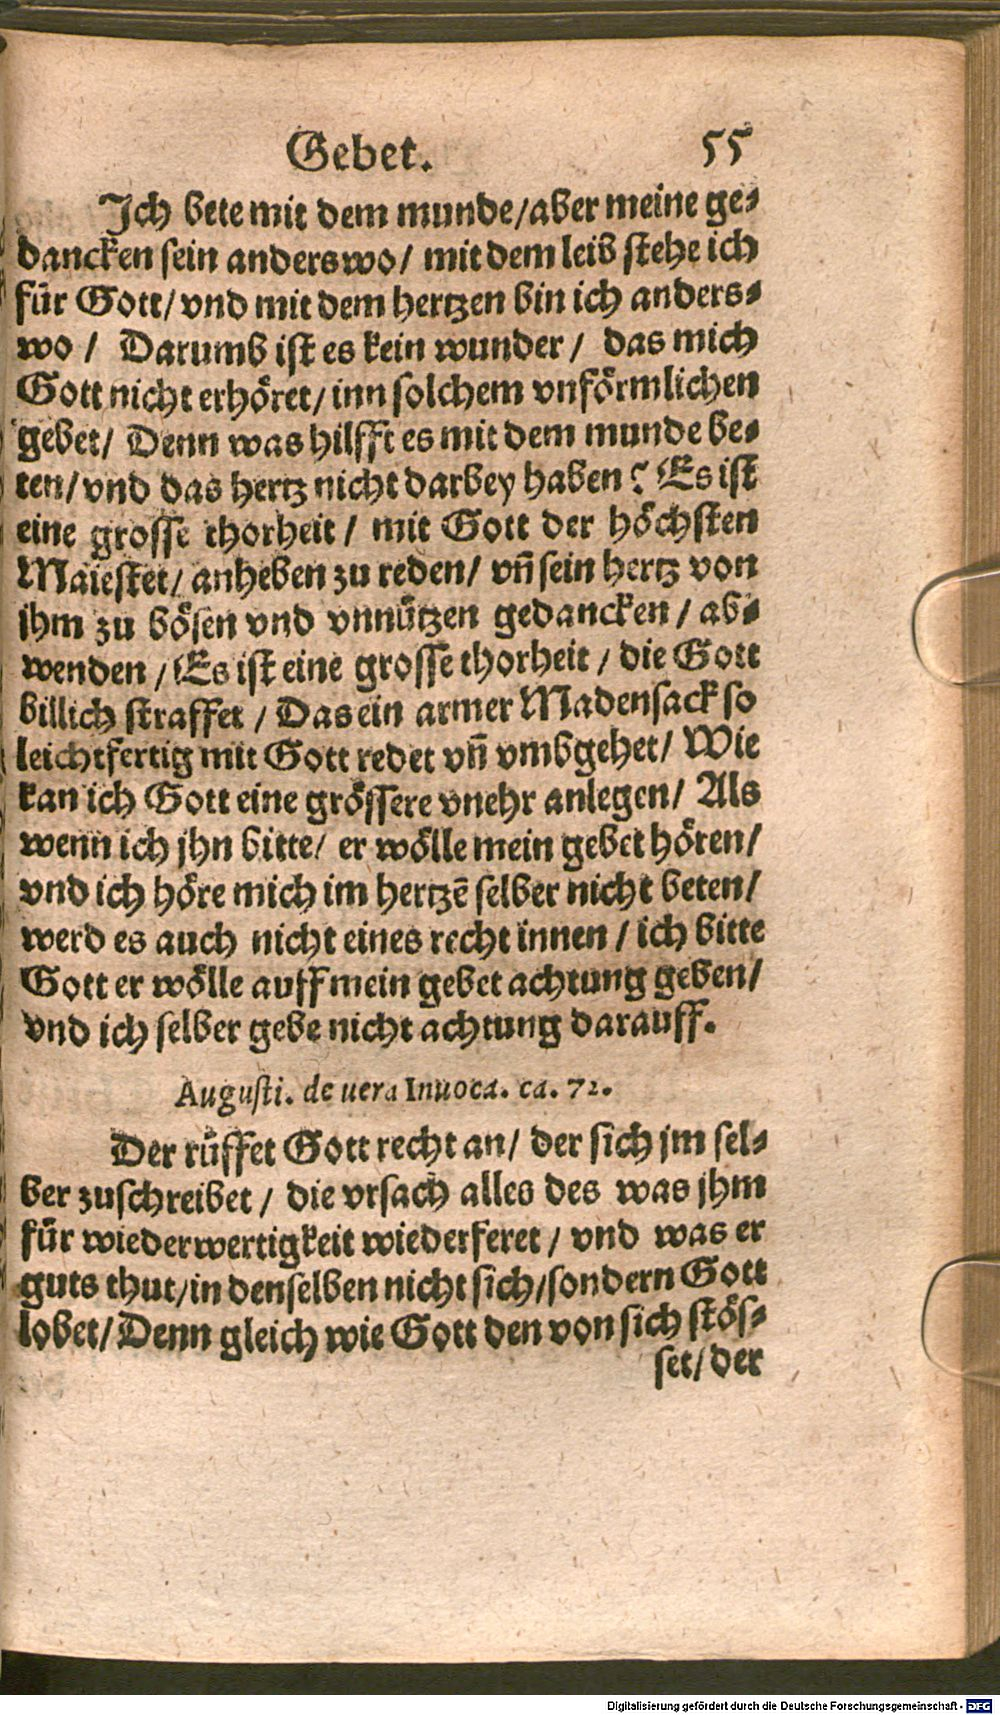 Gebet. 55
Ich bete mit dem munde/aber meine ge⸗
dancken sein anderswo/ mit dem leib stehe ich
für Gott/ vnd mit dem hertzen bin ich anders⸗
wo / Darumb ist es kein wunder/ das mich
Gott nicht erhöret/ inn solchem vnförmlichen
gebet/ Denn was hilfft es mit dem munde be⸗
ten/vnd das hertz nicht darbey haben? Es ist
eine grosse thorheit/ mit Gott der höchsten
Maiestet/ anheben zu reden/ vñ sein hertz von
jhm zu bösen vnd vnnützen gedancken / ab⸗
wenden / Es ist eine grosse thorheit / die Gott
billich straffet / Das ein armer Madensack so
leichtfertig mit Gott redet vñ vmbgehet/ Wie
kan ich Gott eine grössere vnehr anlegen/ Als
wenn ich jhn bitte/ er wölle mein gebet hören/
vnd ich höre mich im hertzẽ selber nicht beten/
werd es auch nicht eines recht innen / ich bitte
Gott er wölle auff mein gebet achtung geben/
vnd ich selber gebe nicht achtung darauff.
Augusti. de uera Inuoca. ca. 72.
Der rüffet Gott recht an/ der sich jm sel⸗
ber zuschreibet / die vrsach alles des was jhm
für wiederwertigkeit wiederferet / vnd was er
guts thut/in denselben nicht sich/sondern Gott
lobet/Denn gleich wie Gott den von sich stös⸗
set/der
Digitalisierung gefördert durch die Deutsche Forschungsgemeinschaft - DFG